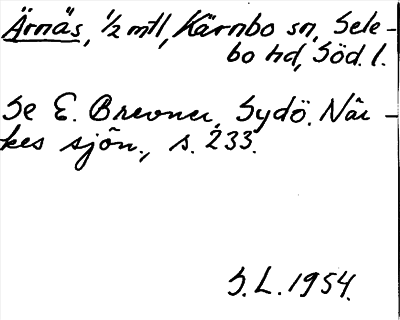 Ärnäs, ½ mtl, Kärnbo sn, Sele-
bo hd, Söd. l.
Se E. Brevner, Sydö. När-
kes sjön., s. 233.
S.L. 1954.